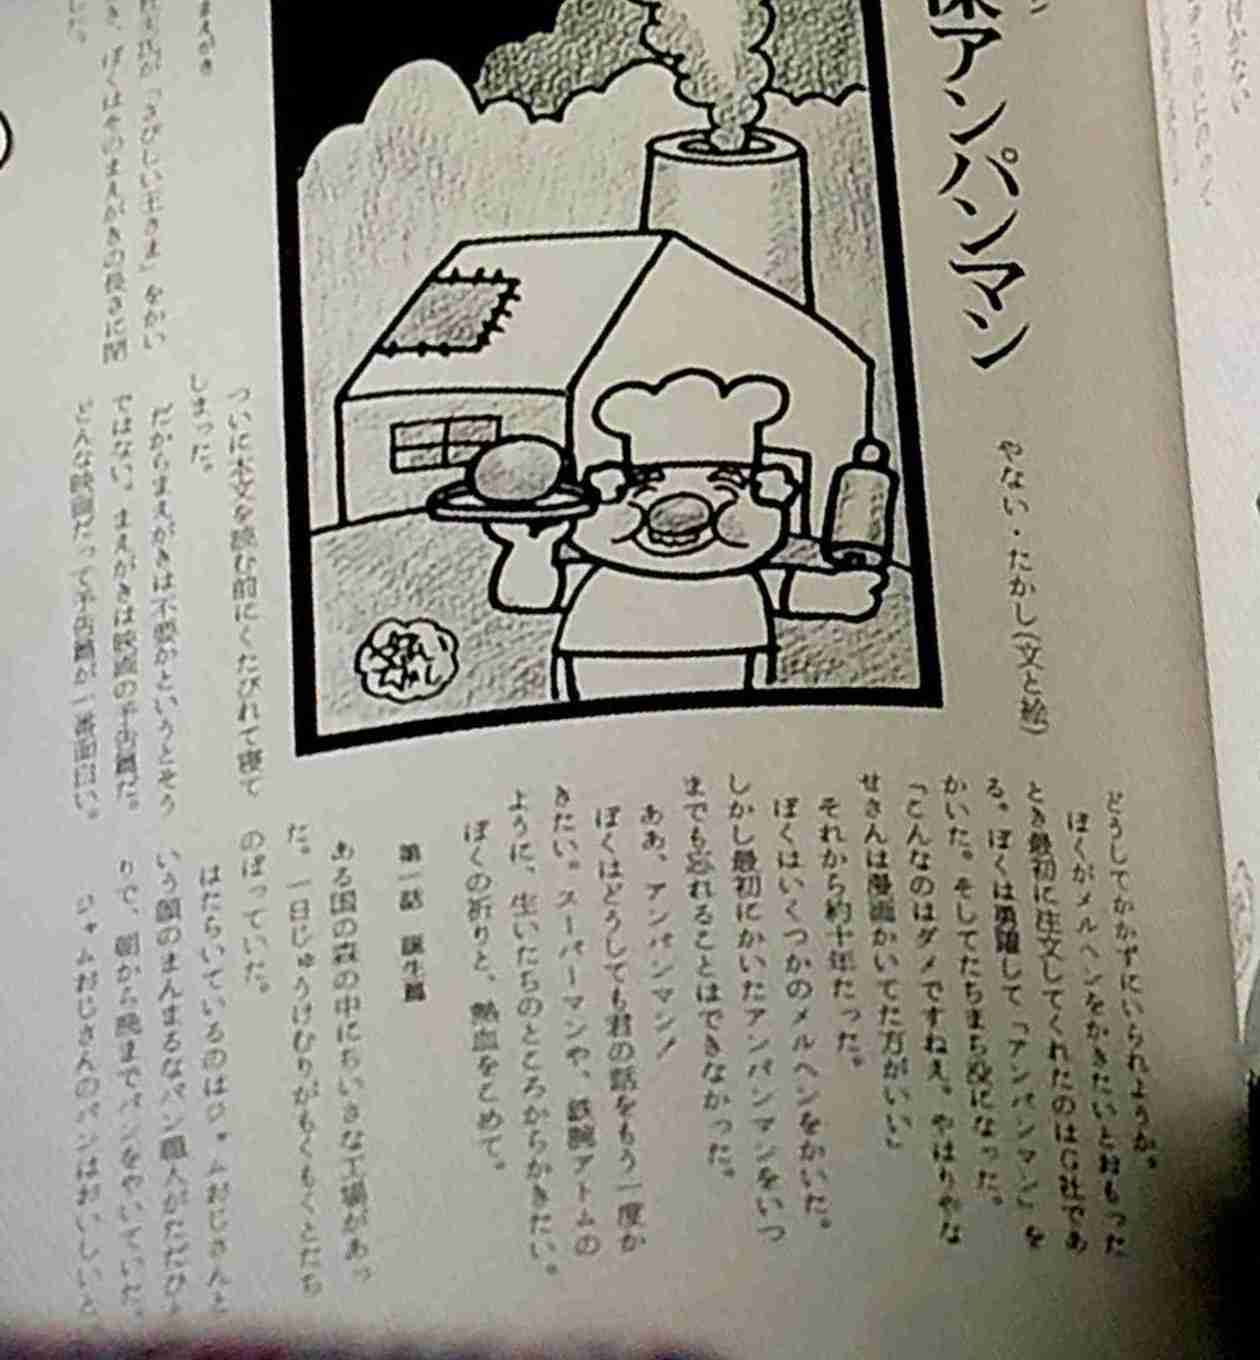 アンパンマン
やない・たかし(文と絵)
まえがき
が「さびしい王さま」をかい
き、ぼくはそのまえがきの長さに閉
した。
ついに本文を読む前にくたびれて寝て
しまった。
だからまえがきは不要かというとそう
ではない。まえがきは映画の予告篇だ。
どんな映画だって予告篇が一番面白い。
どうしてかかずにいられようか。
ぼくがメルヘンをかきたいとおもった
とき最初に注文してくれたのはG社であ
る。ぼくは勇躍して「アンパンマン」を
かいた。そしてたちまち没になった。
「こんなのはダメですねえ。やはりやな
せさんは漫画かいてた方がいい」
それから約十年たった。
ぼくはいくつかのメルヘンをかいた。
しかし最初にかいたアンパンマンをいつ
までも忘れることはできなかった。
ああ、アンパンマン!
ぼくはどうしても君の話をもう一度か
きたい。スーパーマンや、鉄腕アトムの
ように、生いたちのところからかきたい。
ぼくの祈りと、熱血をこめて。
第一話 誕生篇
ある国の森の中にちいさな工場があっ
た。一日じゅうけむりがもくもくとたち
のぼっていた。
はたらいているのはジャムおじさんと
いう顔のまんまるなパン職人がただひと
りで、朝から晩までパンをやいていた。
ジャムおじさんのパンはおいしいと